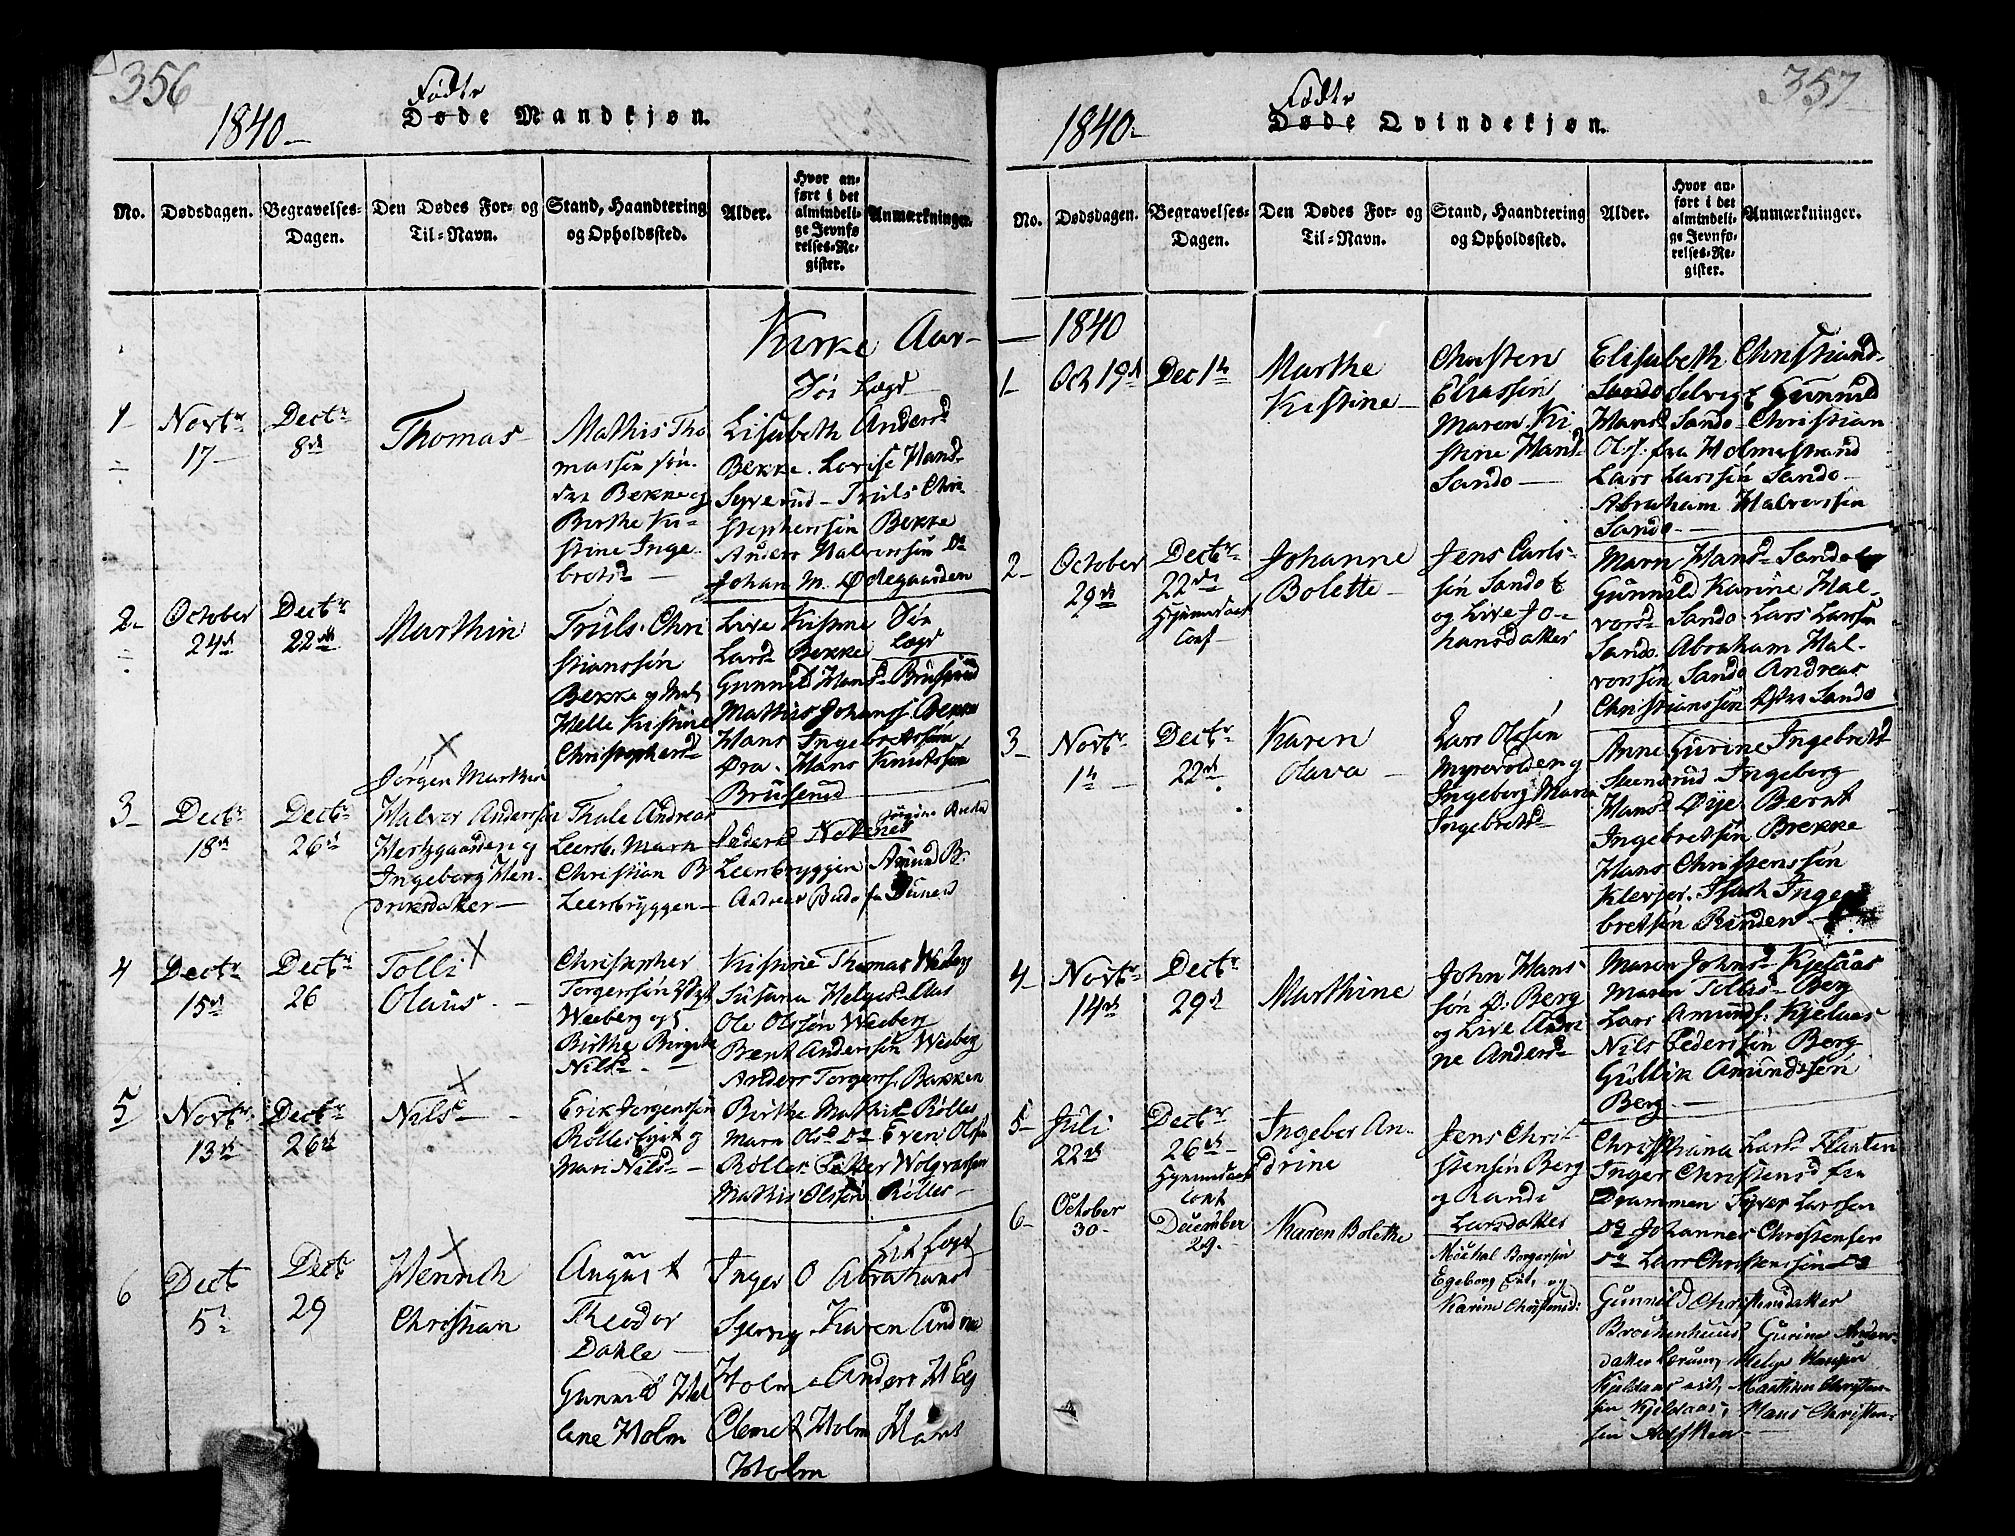 356
1840 –
Födte
Døde Mandkjøn.
No.
Dødsdagen.
Begravelses-
Dagen.
Den Dødes For- og
Til-Navn.
Stand, Haandtering
og Opholdssted.
Alder.
Hvor an-
ført i det
almindeli-
ge Jevnfø
relses-Re-
gister.
Anmærkninger.
Kirke Aar –
Lægd
1
Novbr
17 –
Decbr
8de
Thomas –
Mathis Tho
massen
Bekke og
Birthe Ki=
stine Inge
bretsd –
Lisabeth Andersd
Bekke. Lovise Hansd
Syverud – Truls Chri
stophersen Bekke
Anders Halvorssön Do
Johan M. Ødegaarden
2 –
October
24d
Decbr
22de
Marthin
Truls Chri
stianssön
Bekke og
Helle Kistine
Christophersd
Live Kistine
Larsd Bekke
Gunnild Hansd Bruserud
Mathis Johanss. Bekke
Hans Ingebretssön
Øra. Hans Knudssön
Bruserud
3 –
Decbr
18de
Decbr
26d
X
Jörgen Marthin
Halvor Anderssön
Hertzgaarden og
Ingeborg Hen-
driksdatter –
Thale Andreas
Leersb. Maren
Christian B
Leersbryggen –
Pedersd
Leersbryggen Amund B.
4
Decbr
15de
Decbr
26
X
Tolli
Olaus. –
Christopher
Torgerssön
Weeberg og
Birthe Birgitte
Nilsd. –
Kistine Thomas Weeberg
Susana Helgesd Aas
Ole Olssön Weeberg
Bernt Anderssön Weeberg
Anders Torgerss. Bakken
5
Novbr
13de
Decbr
26de
X
Nils –
Erik Jörgenssön
Röllesbyst og
Mari Nilsd –
Birthe Mathisd Rölles
Maren Olsd Do Even Olssön
Rölles Peder
Mathis Olssön Rölles –
6
Decb
5
Decbr
29
X
Henrich
Christian
August
Theodor
Dahle –
Gunnild Hel
ene Holm
Inger O Abrahamsd
Karen Andrine
Holm Anders H
Clemet Holm
Holm
357
1840 –
Födte
Døde Qvindekjøn.
No.
Dødsdagen.
Begravelses-
Dagen.
Den Dødes For- og
Til-Navn.
Stand, Haandtering
og Opholdssted.
Alder.
Hvor an-
ført i det
almindeli-
ge Jevnfø-
relses-Re-
gister.
Anmærkninger.
– 1840
1 –
Oct 19d
Dec 1te
Marthe
Kistine –
Chresten
Eliassön
Maren Ki
stine Hansd
Sando –
Elisabeth Christiansd.
Sando Selvigt Gunnild
Hansd Sando – Christian
Ols. fra Holmestrand
Lars Larssön Sando –
Abraham Halvorssön
Sando –
2 –
October
29de
Decbr
22de
Hjemmedøbt
Conf
Johanne
Bolette –
Jens Carls-
sön Sando
og Live Jo-
hansdatter
Maren Hansd Sando
Gunnild Karine Hal-
vorsd Sando – Lars Larssön
Sando. Abraham Hal-
vorssön Sando Andreas
Christianssön Sando
3 –
Novbr
1te
Decbr
22de
Karen
Olava –
Lars Olssön
Myrvolden og
Ingeborg Maria
Ingebretsd
Anne Gurine Ingebretsd
Steensrud Ingeborg
Hansd Øye Bernt
Ingebretsön Brekke
Hans Christenssön
Klevjer. Isach Inge
bretsön Rinden –
4 –
Novbr
14de
Decbr
29d
Marthine
John Hans
sön Ø: Berg
og Live Andri
ne Andersd
Maren Johnsd Kjelaas
Maren Tollisd Berg
Lars Amunds. Kjelaas
Nils Pederssön Berg
Gullik Amundssön
Berg. –
5 –
Juli
22de
Decbr
26de
Hjemmedøbt
Conf
Ingeber An-
drine
Jens Chri-
stensön Berg
og Randi
Larsdatter
Christiana Larsd Flaaten
Inger Christensd fra
Drammen Syver Larssen
Do Johannes Christensen
Do Lars Christenssön Do
6 –
October
30 –
December
29.
Karen Bolette
Michal Borgersön
Egeberg Eid, og
Karine Christensd:
Gunnild Christensdatter
Brochenhuus, Gurine Anders-
datter
Kjeldaas Marthin Christen-
sen Kjeldaas, Hans Christen-
sen